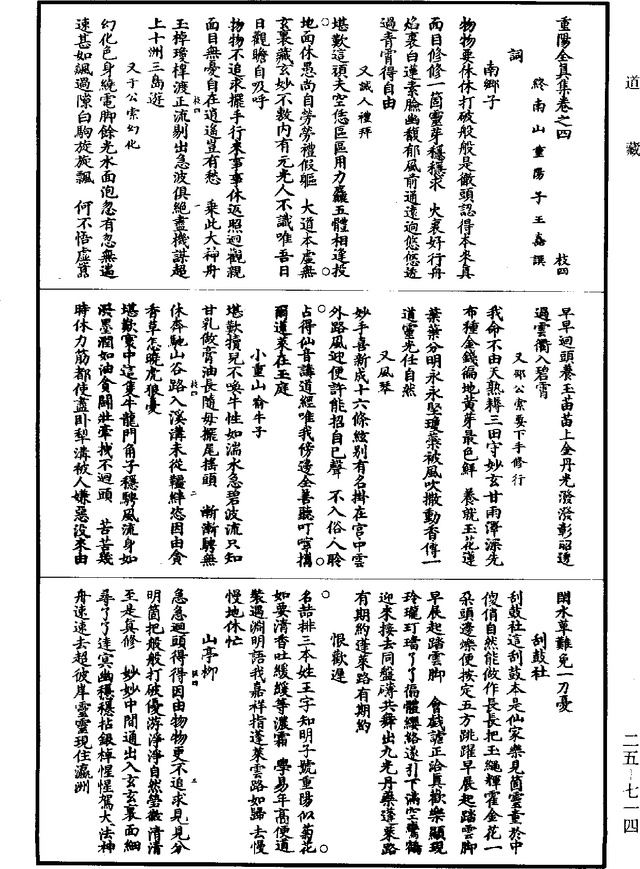 道藏
重陽全真集卷之四
終南山重陽子王嚞譔 枝四
詞
南鄉子
物物要休休打破般般是徹頭認得本來真
面目修修一箇靈芽穩穩求 火裏好行舟
焰裏白蓮素臉幽馥郁風前通遠逈悠悠透
過青霄得自由
又誡人禮拜
堪歎這頑夫空恁區區用力麤五體相逢投
地面休愚尚自勞勞禮假軀 大道本虛無
玄裏藏玄妙不數內有元光人不識唯吾日
日觀瞻自吸呼
物物不追求擺手行來事事休返照迴觀親
面目無憂自在逍遙豈有愁 乘此大神舟
玉棹瓊樟渡正流剔出急波俱絕盡機謀超
上十洲三島遊
又于公索幻化
幻化色身繞電腳餘光水面泡忽有忽無遄
速甚如颯過隙白駒旋旋飄 何不悟虛囂
早早迴頭養玉苗苗上金丹光潑潑彰昭透
過雲衢入碧霄
又鄒公索要下手修行
我命不由天熟耨三田守妙玄甘雨澤深先
布種金錢徧地黃芽最色鮮 養就玉花蓮
葉葉分明永永堅瓊蘂被風吹撒動香傳一
道靈光任自然
又風琴
妙手喜新成十六條絃別有名掛在宮中雲
外路風迎便許能招自己聲 不入俗人聆
占得仙音講道經唯我傍邊全善聽叮嚀攜
爾蓬萊在玉庭
小重山喻牛子
堪歎犢兒不喚牛性如湍水急碧波流只知
甘乳做膏油長隨母擺尾搖頭 漸漸騁無
休奔馳山谷路入溪溝未從韁絆恣因由貪
香草怎曉虎狼憂
堪歎寰中這隻牛龍門角子穩騁風流身如
潑墨潤如油貪鬪壯牽拽不迴頭 苦苦幾
時休力筋都使盡卧犁溝被人嫌惡沒來由
閑水草難免一刀憂
刮鼓社
刮鼓社這刮鼓本是仙家樂見箇靈童於中
傻俏自然能做作長長把玉繩輝霍金花一
朵頭邊爍便按定五方跳躍早展起踏雲腳
早展起踏雲腳 會戲謔正洽真歡樂顯現
玲瓏玎璫了了徧體纓絡遂引下滿空鸞鶴
迎來接去同盤礴共舞出九光丹藥蓬萊路
有期約蓬萊路有期約
恨歡遲
名喆排三本姓王字知明子號重陽似菊花
如要清香吐緩緩等濃霜 學易年高便道
裝遇淵明語我嘉祥指蓬萊雲路如歸去慢
慢地休忙
山亭柳
急急迴頭得得因由物物更不追求見見分
明箇把般般打破優游淨淨自然瑩徹清清
至是真修 妙妙中間通出入玄玄裏面細
尋了了達冥幽穩穩拈銀棹惺惺駕大法神
舟速速去超彼岸靈靈現住瀛洲
二五—七一四